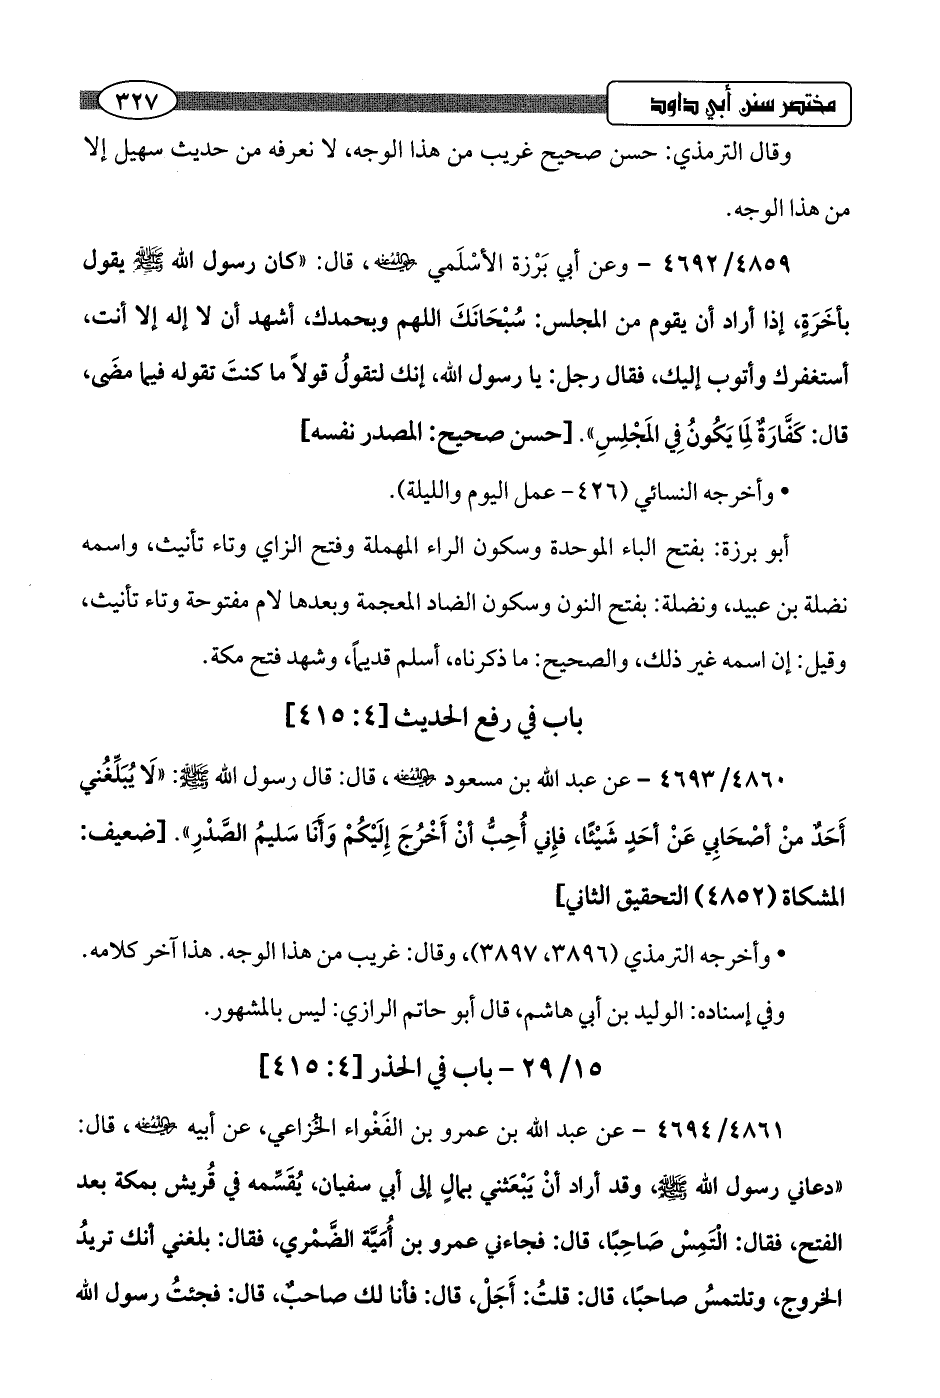 مختصر سنن أبي داود ٣٢٧
وقال الترمذي: حسن صحيح غريب من هذا الوجه، لا نعرفه من حديث سهيل إلا
من هذا الوجه.
٤٦٩٢/٤٨٥٩ - وعن أبي بَرْزة الأسْلَمي رضي الله عنه، قال: «كان رسول الله ﷺ يقول
بأخَرَةٍ، إذا أراد أن يقوم من المجلس: سُبْحَانَكَ اللهم وبحمدك، أشهد أن لا إله إلا أنت،
أستغفرك وأتوب إليك، فقال رجل: يا رسول الله، إنك لتقولُ قولاً ما كنتَ تقوله فيما مضَى،
قال: كَفَّارَةٌ لِمَا يَكُونُ فِي المَجْلِسِ». [حسن صحيح: المصدر نفسه]
• وأخرجه النسائي (٤٢٦- عمل اليوم والليلة).
أبو برزة: بفتح الباء الموحدة وسكون الراء المهملة وفتح الزاي وتاء تأنيث، واسمه
نضلة بن عبيد، ونضلة: بفتح النون وسكون الضاد المعجمة وبعدها لام مفتوحة وتاء تأنيث،
وقيل: إن اسمه غير ذلك، والصحيح: ما ذكرناه، أسلم قديماً، وشهد فتح مكة.
باب في رفع الحديث [٤: ٤١٥]
٤٦٩٣/٤٨٦٠ - عن عبد الله بن مسعود رضي الله عنه، قال: قال رسول الله ﷺ: «لَا يُبَلِّغُني
أَحَدٌ منْ أصْحَابي عَنْ أحَدٍ شَيْئًا، فإني أُحِبُّ أنْ أَخْرُجَ إِلَيْكُمْ وَأَنَا سَليمُ الصَّدْرِ». [ضعيف:
المشكاة (٤٨٥٢) التحقيق الثاني]
• وأخرجه الترمذي (٣٨٩٦، ٣٨٩٧)، وقال: غريب من هذا الوجه. هذا آخر كلامه.
وفي إسناده: الوليد بن أبي هاشم، قال أبو حاتم الرازي: ليس بالمشهور.
٢٩/١٥ - باب في الحذر [٤: ٤١٥]
٤٦٩٤/٤٨٦١ - عن عبد الله بن عمرو بن الفَغْواء الخُزاعي، عن أبيه رضي الله عنه، قال:
«دعاني رسول الله ﷺ، وقد أراد أنْ يَبْعَثني بمالٍ إلى أبي سفيان، يُقَسِّمه في قُريش بمكة بعد
الفتح، فقال: الْتَمِسْ صَاحِبًا، قال: فجاءني عمرو بن أُمَيَّة الضَّمْري، فقال: بلغني أنك تريدُ
الخروج، وتلتمسُ صاحبًا، قال: قلتُ: أَجَلْ، قال: فأنا لك صاحبٌ، قال: فجئتُ رسول الله